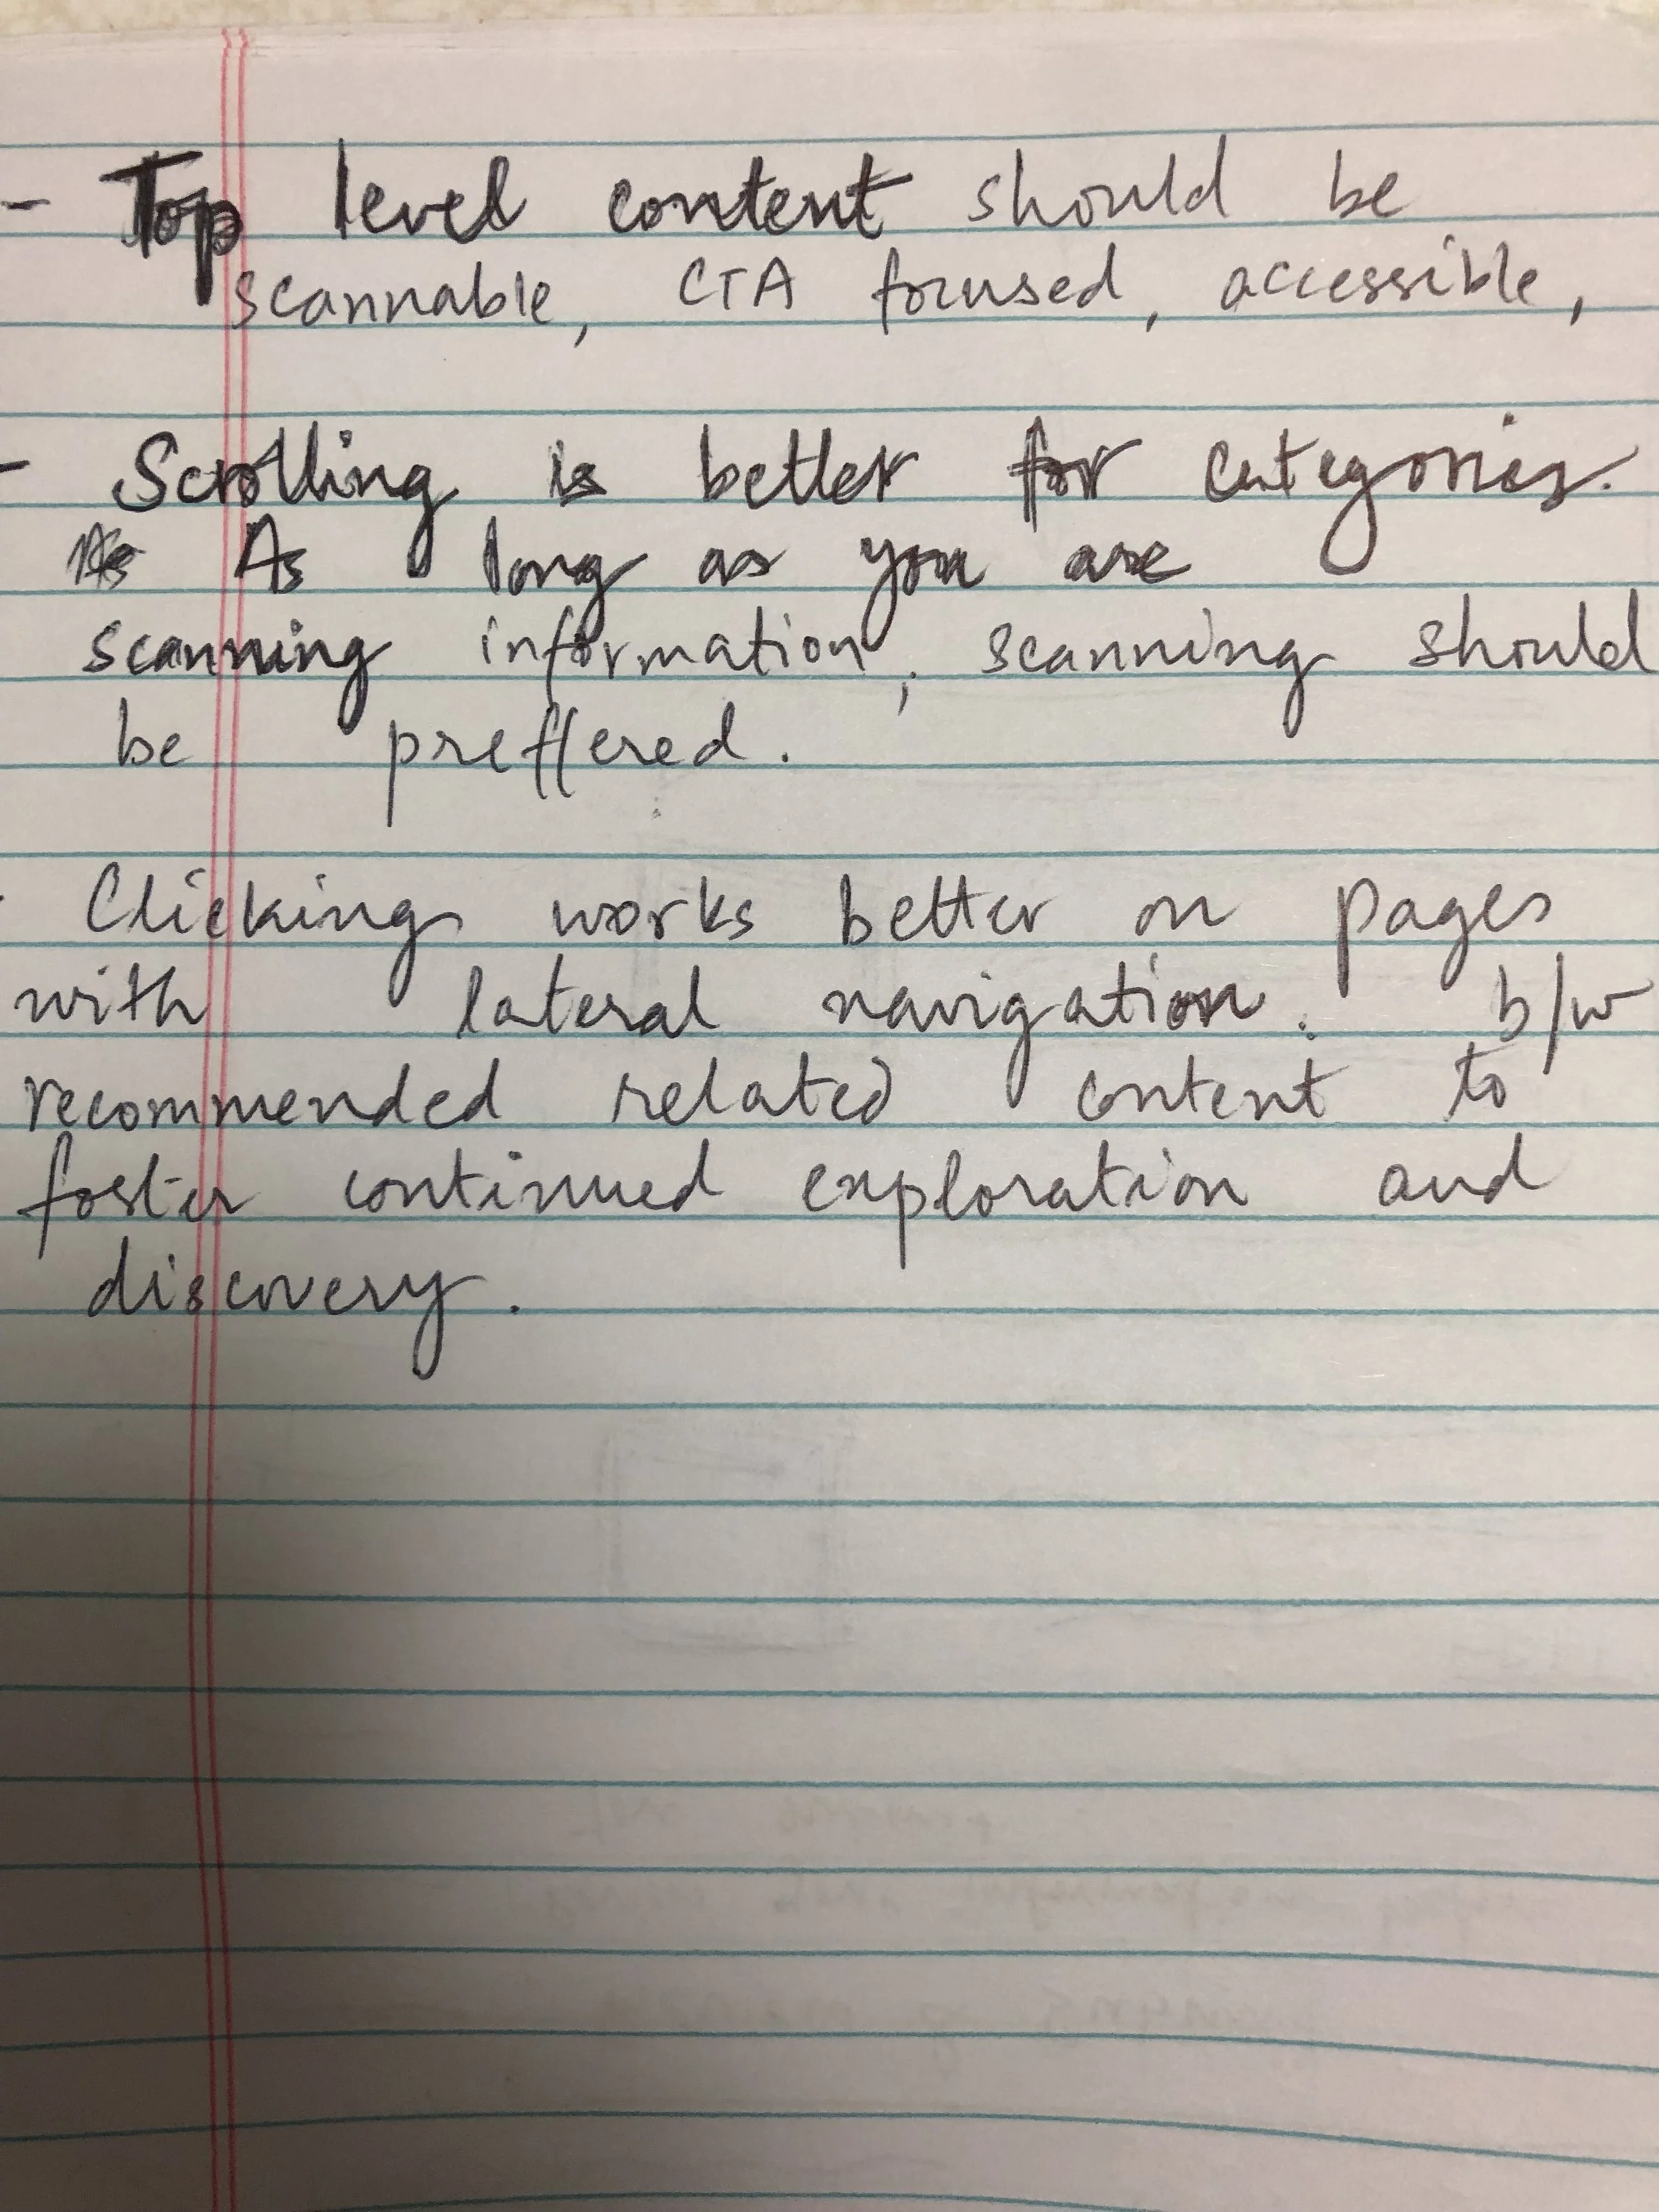 - Top level content should be
scannable, CTA focused, accessible,
- Scrolling is better for categories.
As As long as you are
scanning information, scanning should
be preffered.
- Clicking works better on pages
with lateral navigation. b/w
recommended related content to
foster continued exploration and
discovery.